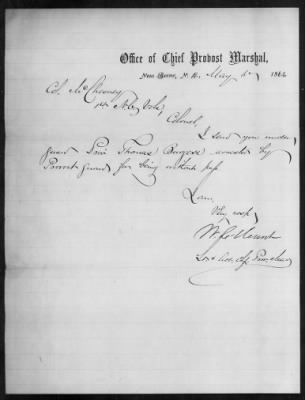 Office of Chief Provost Marshal,
New Berne, N. C., May 186
Col. McChesney
1st N.C. Vols,
Colonel,
I send you under
guard Priv Thomas Burgess arrested by
Provost Guard for being without pass
I am,
Very resp